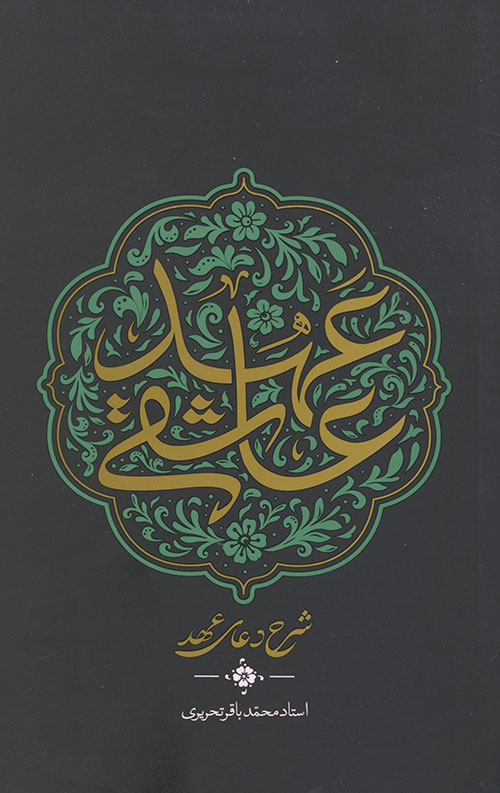 عهد
عاشقی
شرح دعای عهد
استاد محمّدباقر تحریری